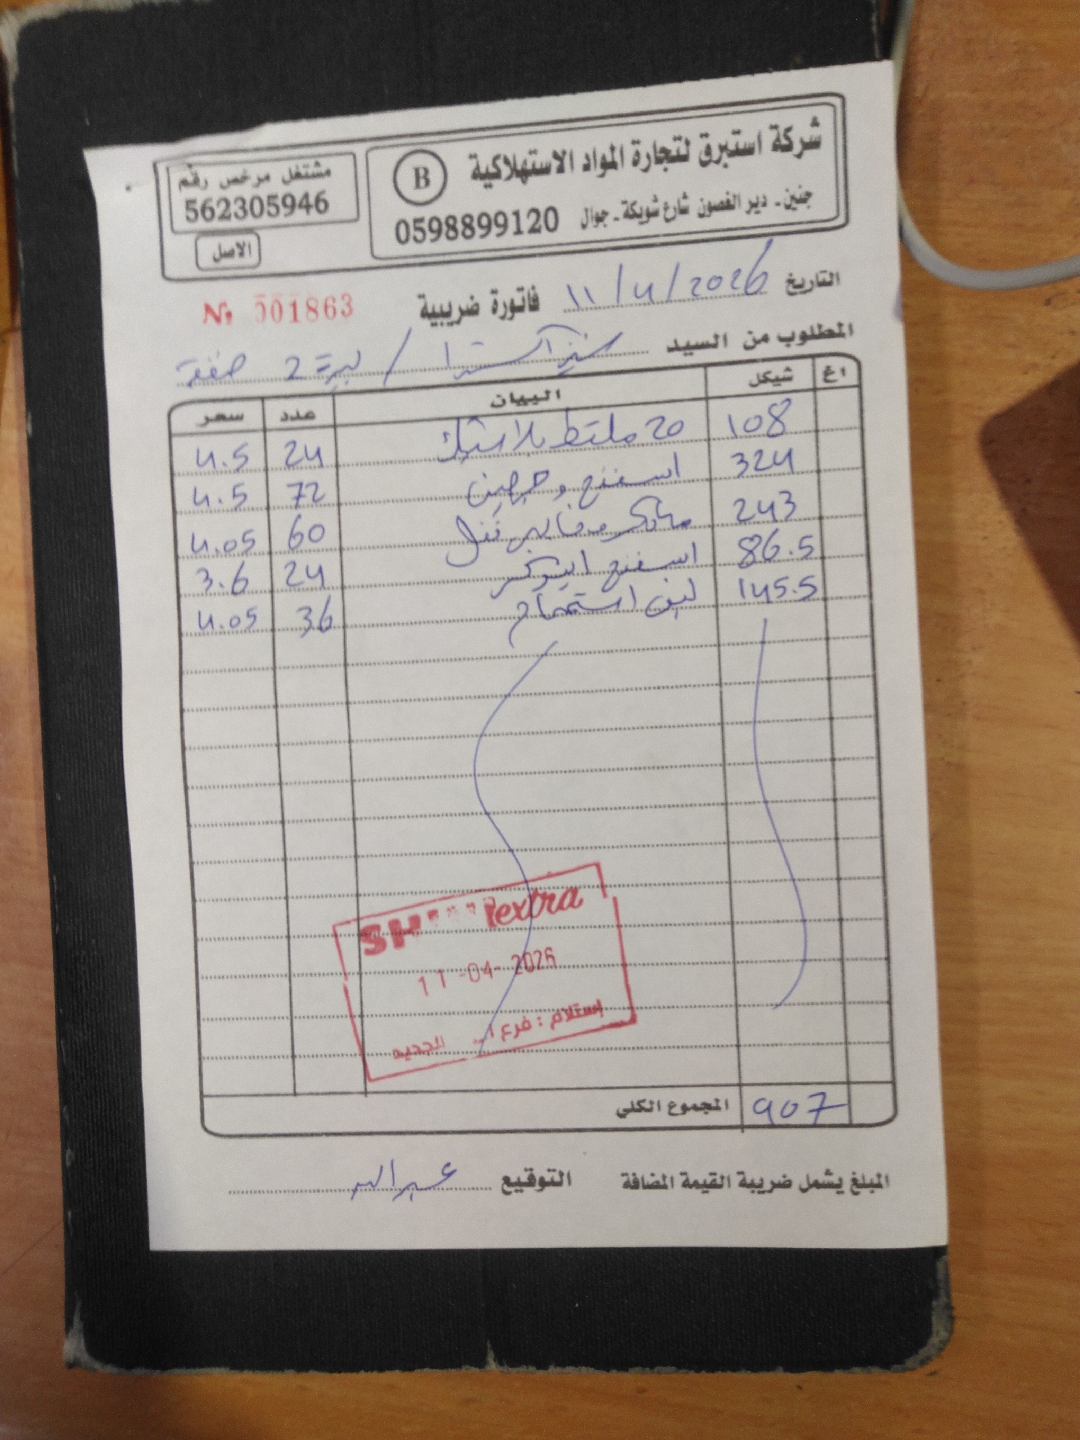 شركة استبرق لتجارة المواد الاستهلاكية
جنين - دير الغصون شارع شويكة - جوال 0598899120
B
مشتغل مرخص رقم
562305946
الاصل
التاريخ 11/4/2026
فاتورة ضريبية
№ 001863
المطلوب من السيد / 2
اغ شيكل البيان عدد سعر
108 20 ملقط بلاستيك 24 4.5
324 اسفنج وجهين 72 4.5
243 60 4.05
86.5 اسفنج 24 3.6
145.5 ليف استحمام 36 4.05
extra
11-04-2026
إستلام : فرع الجديد
المجموع الكلي 907
المبلغ يشمل ضريبة القيمة المضافة
التوقيع